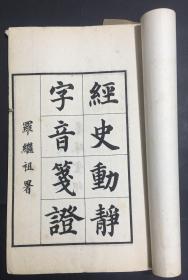 經史動靜
字音箋證
羅繼祖署